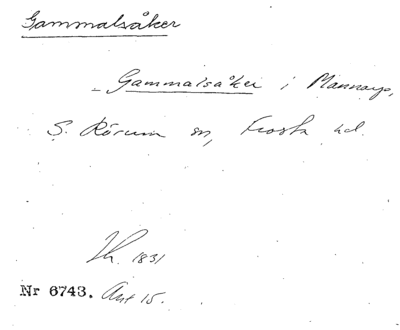 Gammalsåker
Gammalsåker i Mannarp,
S. Rörum sn, Frosta hd.
Th. 1831
Nr 6743. Ant 15.